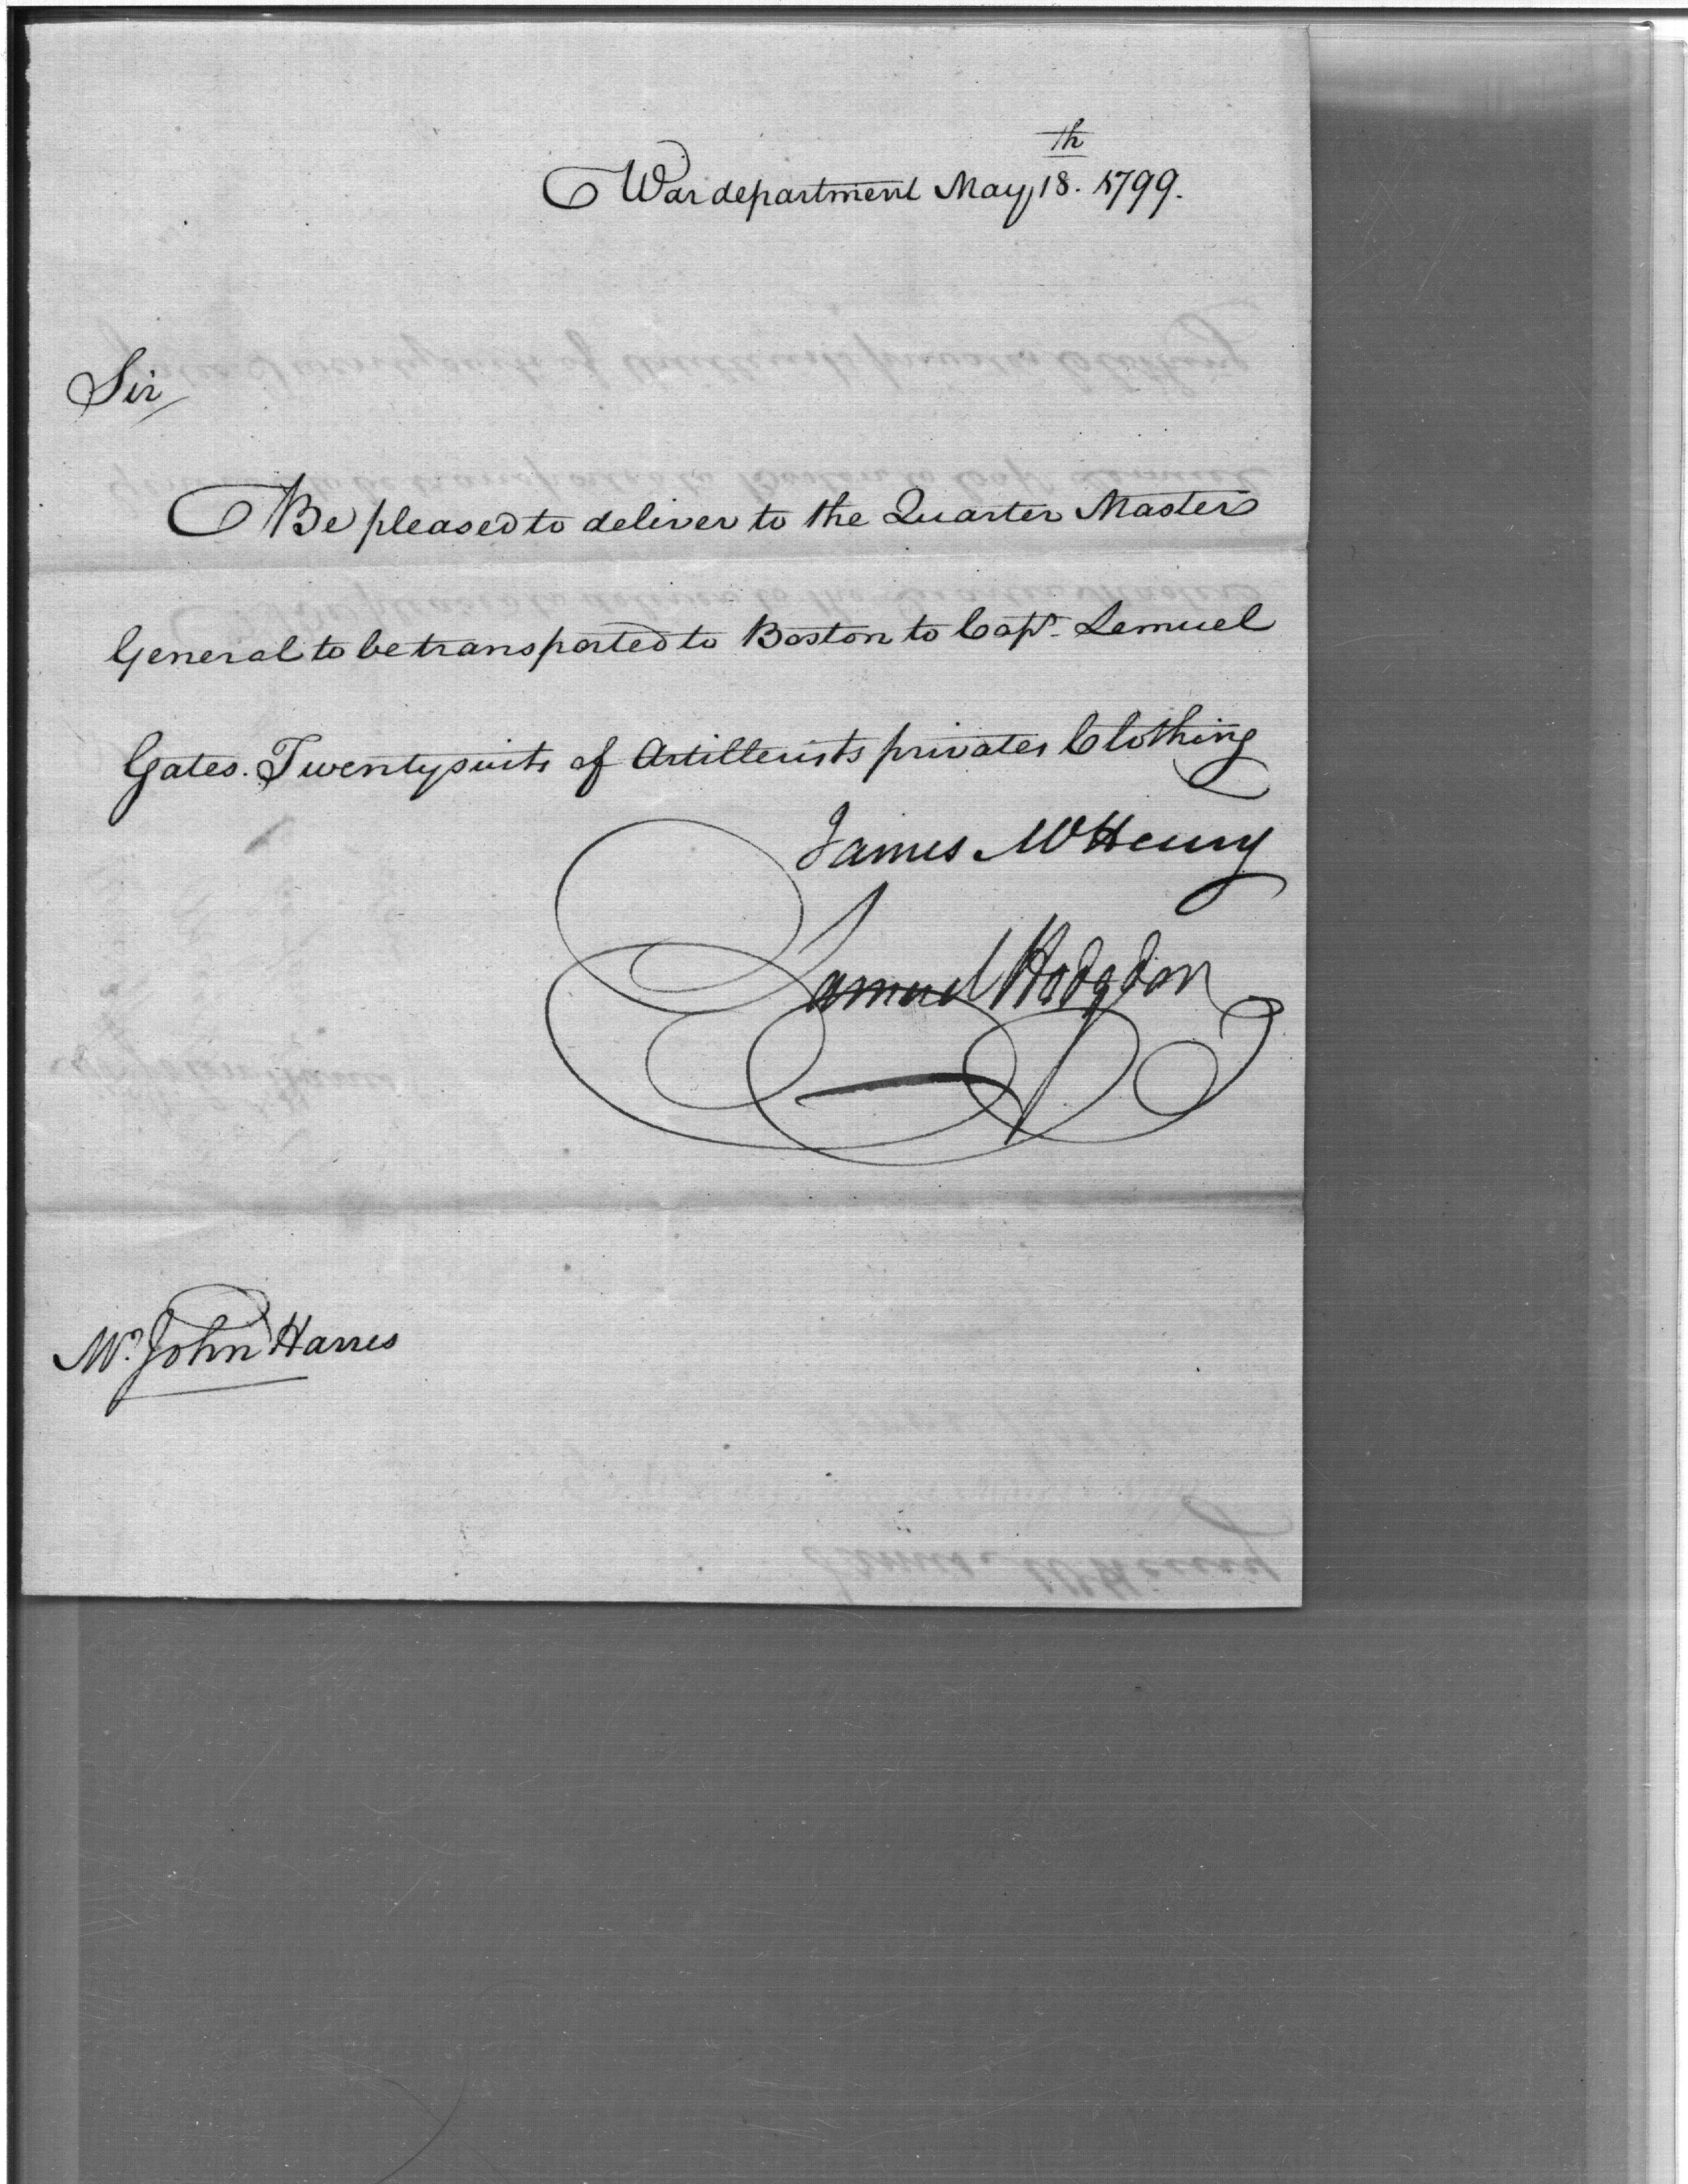 War department May 18th. 1799.
Sir
Be pleased to deliver to the Quarter Masters
General to be transported to Boston to Capt. Lemuel
Gates. Twenty suits of Artillerists privates Clothing
James McHenry
Samuel Hodgdon
Mr. John Harris